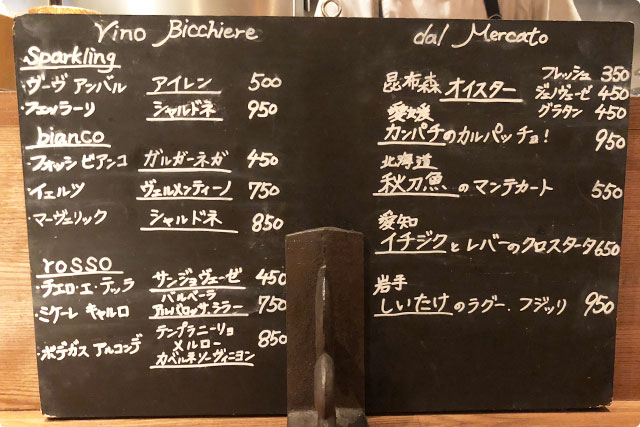 Vino Bicchiere
Sparkling
・ヴーヴ アンバル アイレン 500
・フェッラーリ シャルドネ 950
bianco
・フォッシビアンコ ガルガーネガ 450
・イェルツ ヴェルメンティーノ 750
・マーヴェリック シャルドネ 850
rosso
・チェロ・エ・テッラ サンジョヴェーゼ 450
バルベーラ
・ミゲーレ キャルロ 750
テンプラニーリョ
・ボデガス アルコンデ メルロー 850
カベルネソーヴィニヨン
dal Mercato
昆布森 オイスター フレッシュ 350
ジェノヴェーゼ 450
グラタン 450
愛媛
カンパチのカルパッチョ! 950
北海道
秋刀魚のマンテカート 550
愛知
イチジクとレバーのクロスタータ 650
岩手
しいたけのラグー.フジッリ 950